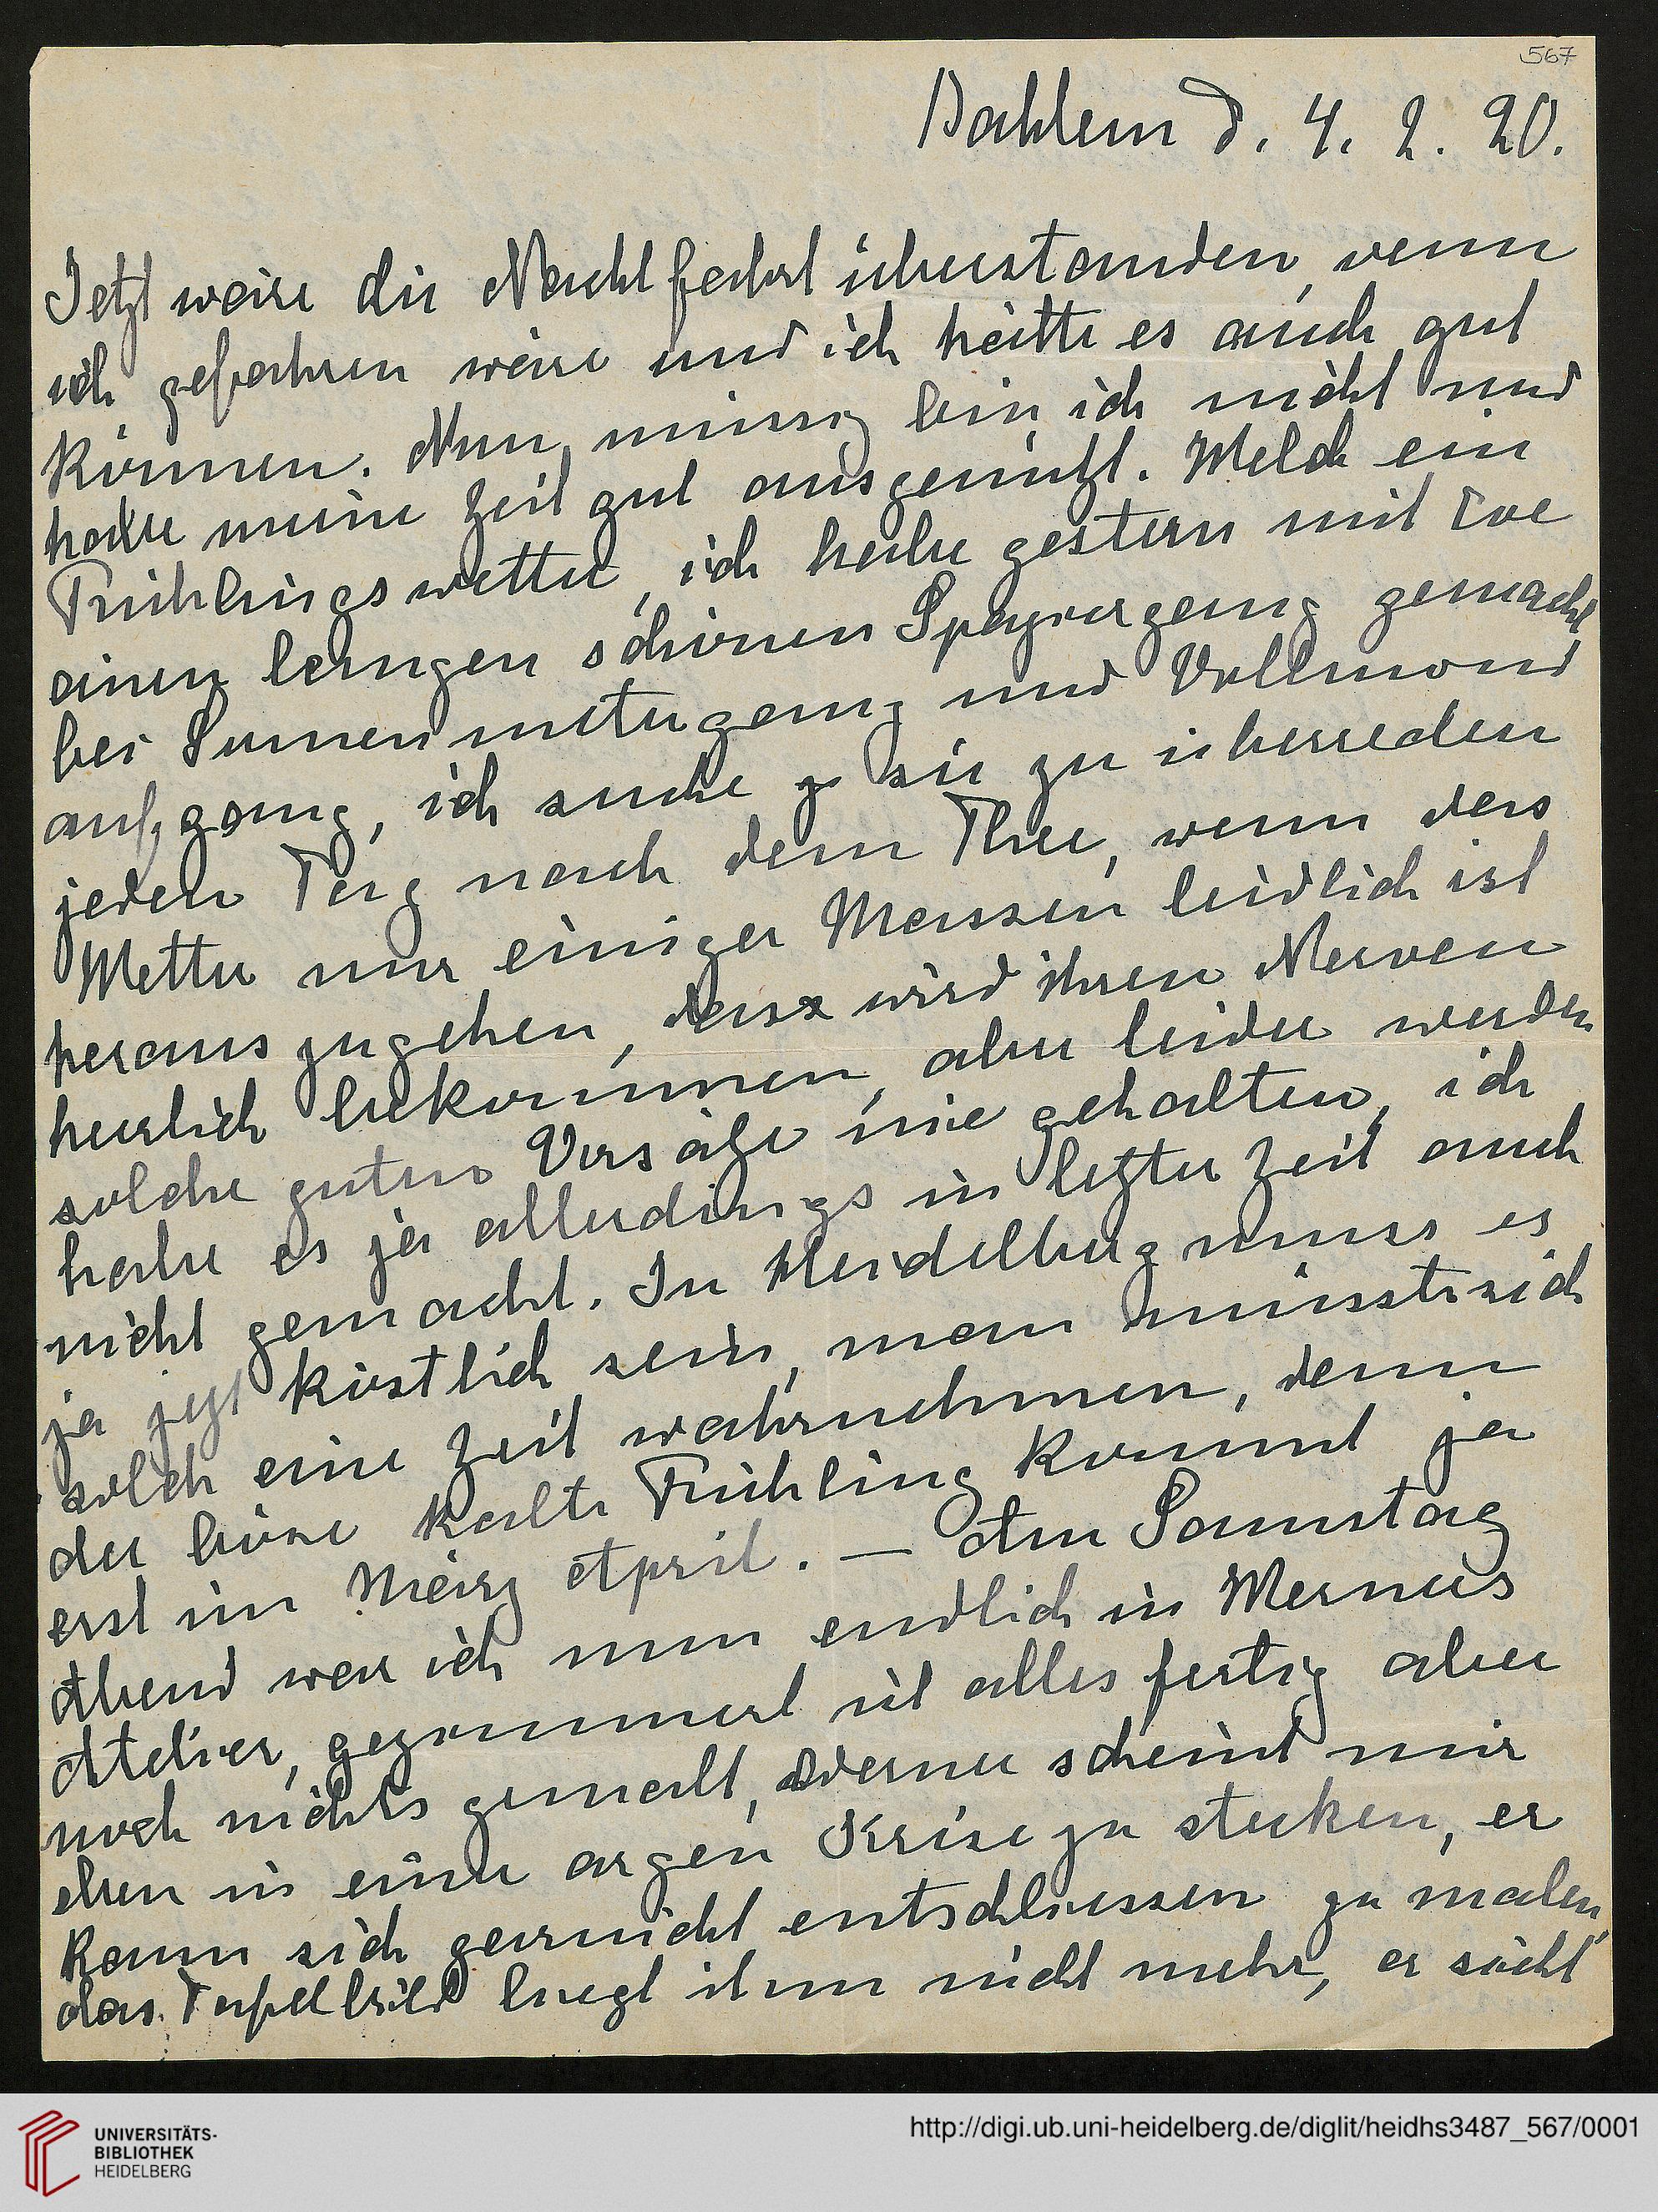 567
Dahlem d. 4. 2. 20.
Jetzt wäre die Nachtfahrt überstanden, wenn
ich gefahren wäre und ich hätte es auch gut
können. Nun, müssig bin ich nicht und
habe meine Zeit gut ausgenützt. Welch ein
Frühlingswetter, ich habe gestern mit Eve
einen langen schönen Spaziergang gemacht
bei Sonnenuntergang und Vollmond
aufgang, ich suche ja sie zu überreden
jeden Tag nach dem Thee, wenn das
Wetter nur einiger Massen leidlich ist
herauszugehen, dass wird ihren Nerven
herrlich bekommen, aber leider werden
solche guten Vorsäze nie gehalten, ich
habe es ja allerdings in letzter Zeit auch
nicht gemacht. In Heidelberg muss es
ja jezt köstlich sein, man müsste sich
solch eine Zeit wahrnehmen, denn
der böse kalte Frühling kommt ja
erst im März April. — Am Sonnstag
Abend war ich nun endlich in Werners
Atelier, gezimmert ist alles fertig aber
noch nichts gemalt, Werner scheint mir
eben in einer argen Krise zu stecken, er
kann sich garnicht entschliessen zu malen,
das Tafelbild liegt ihm nicht mehr, er sieht
UNIVERSITÄTS-
BIBLIOTHEK
HEIDELBERG
http://digi.ub.uni-heidelberg.de/diglit/heidhs3487_567/0001